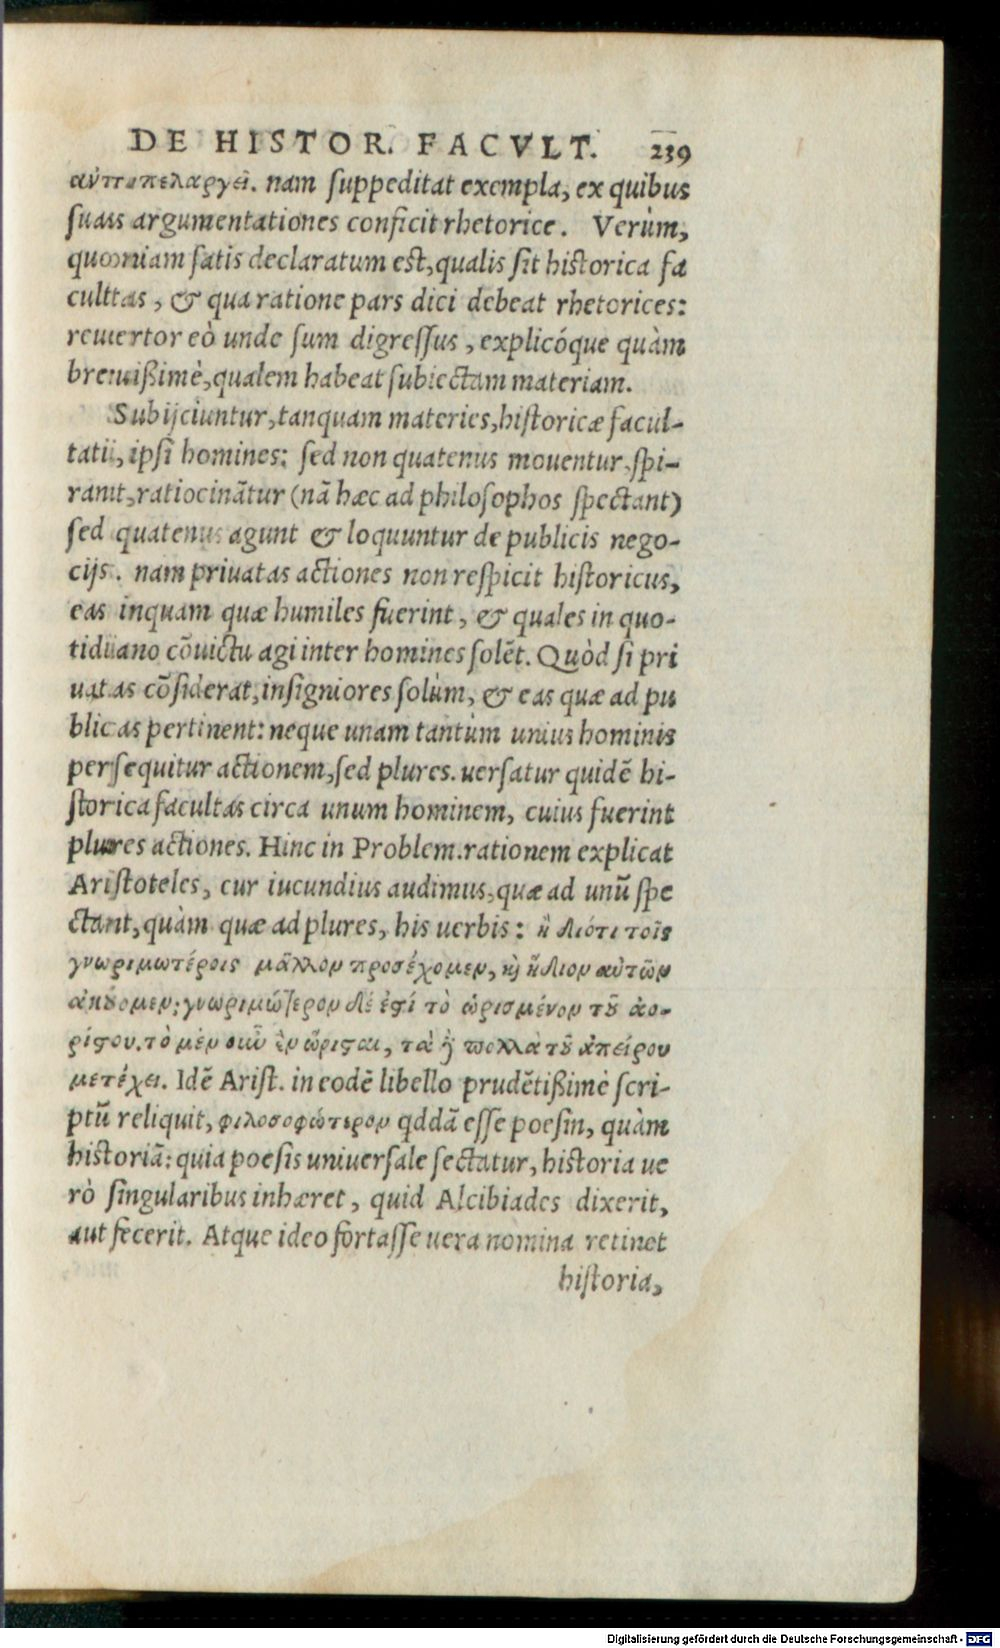 DE HISTOR. FACVLT. 239
nam suppeditat exempla, ex quibus
suas argumentationes conficit rhetorice. Verùm,
quoniam satis declaratum est, qualis sit historica fa
cultas, & qua ratione pars dici debeat rhetorices:
reuertor eò unde sum digressus, explicóque quàm
breuißimè, qualem habeat subiectam materiam.
Subijciuntur, tanquam materies, historicæ facul-
tati, ipsi homines: sed non quatenus mouentur, spi-
rant, ratiocinātur (nā hæc ad philosophos spectant)
sed quatenus agunt & loquuntur de publicis nego-
cijs. nam priuatas actiones non respicit historicus,
eas inquam quæ humiles fuerint, & quales in quo-
tidiano cōuictu agi inter homines solēt. Quòd si pri
uatas cōsiderat, insigniores solùm, & eas quæ ad pu
blicas pertinent: neque unam tantùm unius hominis
persequitur actionem, sed plures. uersatur quidē hi-
storica facultas circa unum hominem, cuius fuerint
plures actiones. Hinc in Problem. rationem explicat
Aristoteles, cur iucundius audimus, quæ ad unū spe
ctant, quàm quæ ad plures, his uerbis: ἢ διότι τοῖς
γνωριμωτέροις μᾶλλον προσέχομεν, καὶ ἥδιον αὐτῶν
ἀκούομεν; γνωριμώτερον δέ ἐστί τὸ ὡρισμένον τοῦ ἀο-
ρίστου. τὸ μὲν οὖν ἓν ὥρισται, τὰ δὲ πολλὰ τοῦ ἀπείρου
μετέχει. Idē Arist. in eodē libello prudētißimè scri-
ptū reliquit, φιλοσοφώτερον qddā esse poesin, quàm
historiā: quia poesis uniuersale sectatur, historia ue
rò singularibus inhæret, quid Alcibiades dixerit,
aut fecerit. Atque ideo fortasse uera nomina retinet
historia,
Digitalisierung gefördert durch die Deutsche Forschungsgemeinschaft - DFG